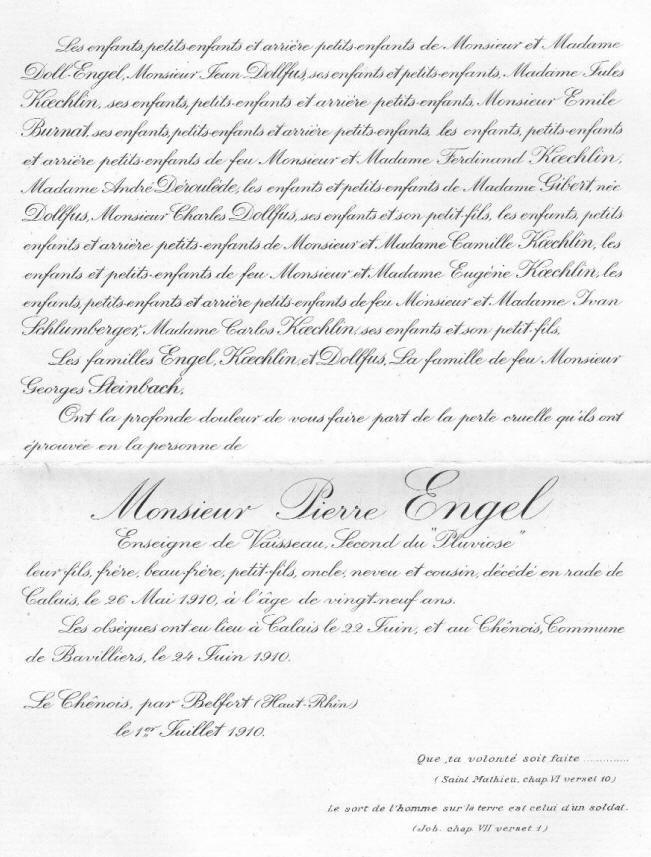 Les enfants, petits-enfants et arrière petits-enfants de Monsieur et Madame
Doll-Engel, Monsieur Jean Dollfus, ses enfants et petits-enfants, Madame Jules
Kœchlin, ses enfants, petits-enfants et arrière petits-enfants, Monsieur Emile
Burnat, ses enfants, petits-enfants et arrière petits-enfants, les enfants, petits-enfants
et arrière petits-enfants de feu Monsieur et Madame Ferdinand Kœchlin,
Madame André Déroulède, les enfants et petits-enfants de Madame Gibert, née
Dollfus, Monsieur Charles Dollfus, ses enfants et son petit-fils, les enfants, petits
enfants et arrière petits-enfants de Monsieur et Madame Camille Kœchlin, les
enfants et petits-enfants de feu Monsieur et Madame Eugène Kœchlin, les
enfants, petits-enfants et arrière petits-enfants de feu Monsieur et Madame Ivan
Schlumberger, Madame Carlos Kœchlin, ses enfants et son petit-fils,
Les familles Engel, Kœchlin, et Dollfus, La famille de feu Monsieur
Georges Steinbach,
Ont la profonde douleur de vous faire part de la perte cruelle qu'ils ont
éprouvée en la personne de
Monsieur Pierre Engel
Enseigne de Vaisseau, Second du "Pluviose"
leur fils, frère, beau-frère, petit-fils, oncle, neveu et cousin, décédé en rade de
Calais, le 26 Mai 1910, à l'âge de vingt-neuf ans.
Les obsèques ont eu lieu à Calais le 22 Juin, et au Chênois, Commune
de Bavilliers, le 24 Juin 1910.
Le Chênois, par Belfort (Haut-Rhin)
le 1er Juillet 1910.
Que ta volonté soit faite ..............
(Saint Mathieu, chap. VI verset 10)
Le sort de l'homme sur la terre est celui d'un soldat.
(Job. chap. VII verset 1)